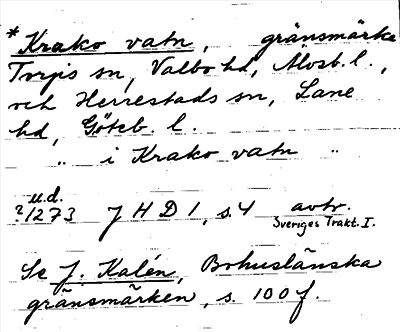 *Krako vatn, gränsmärke
Torps sn, Valbo hd, Älvsb. l.,
och Herrestads sn, Lane
hd, Göteb. l.
„ i Krako vatn „
u.d.
?1273 J H D 1, s. 4 avtr.
Sveriges Trakt. I.
Se J. Kalén, Bohuslänska
gränsmärken, s. 100 f.